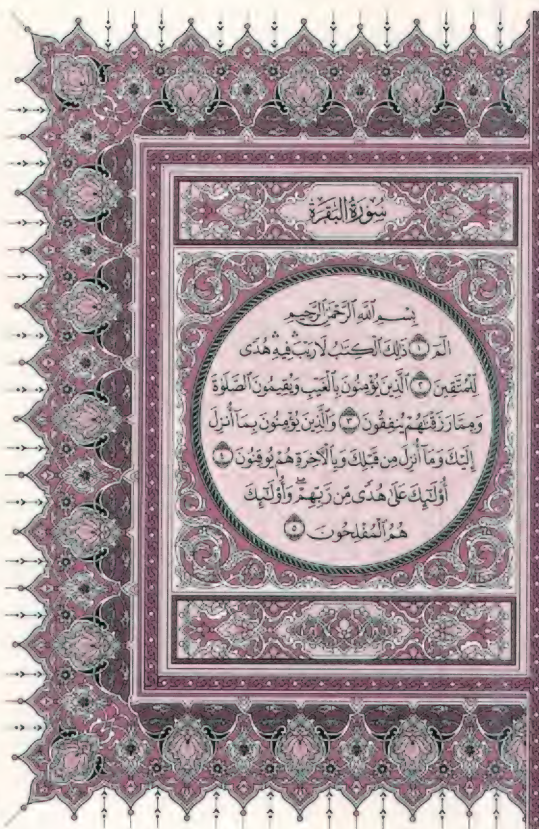 سُورَةُ الْبَقَرَةِ
بِسْمِ ٱللَّهِ ٱلرَّحْمَٰنِ ٱلرَّحِيمِ
الٓمٓ ۝١ ذَٰلِكَ ٱلْكِتَٰبُ لَا رَيْبَ ۛ فِيهِ ۛ هُدًى
لِّلْمُتَّقِينَ ۝٢ ٱلَّذِينَ يُؤْمِنُونَ بِٱلْغَيْبِ وَيُقِيمُونَ ٱلصَّلَوٰةَ
وَمِمَّا رَزَقْنَٰهُمْ يُنفِقُونَ ۝٣ وَٱلَّذِينَ يُؤْمِنُونَ بِمَآ أُنزِلَ
إِلَيْكَ وَمَآ أُنزِلَ مِن قَبْلِكَ وَبِٱلْأٓخِرَةِ هُمْ يُوقِنُونَ ۝٤
أُو۟لَٰٓئِكَ عَلَىٰ هُدًى مِّن رَّبِّهِمْ ۖ وَأُو۟لَٰٓئِكَ
هُمُ ٱلْمُفْلِحُونَ ۝٥